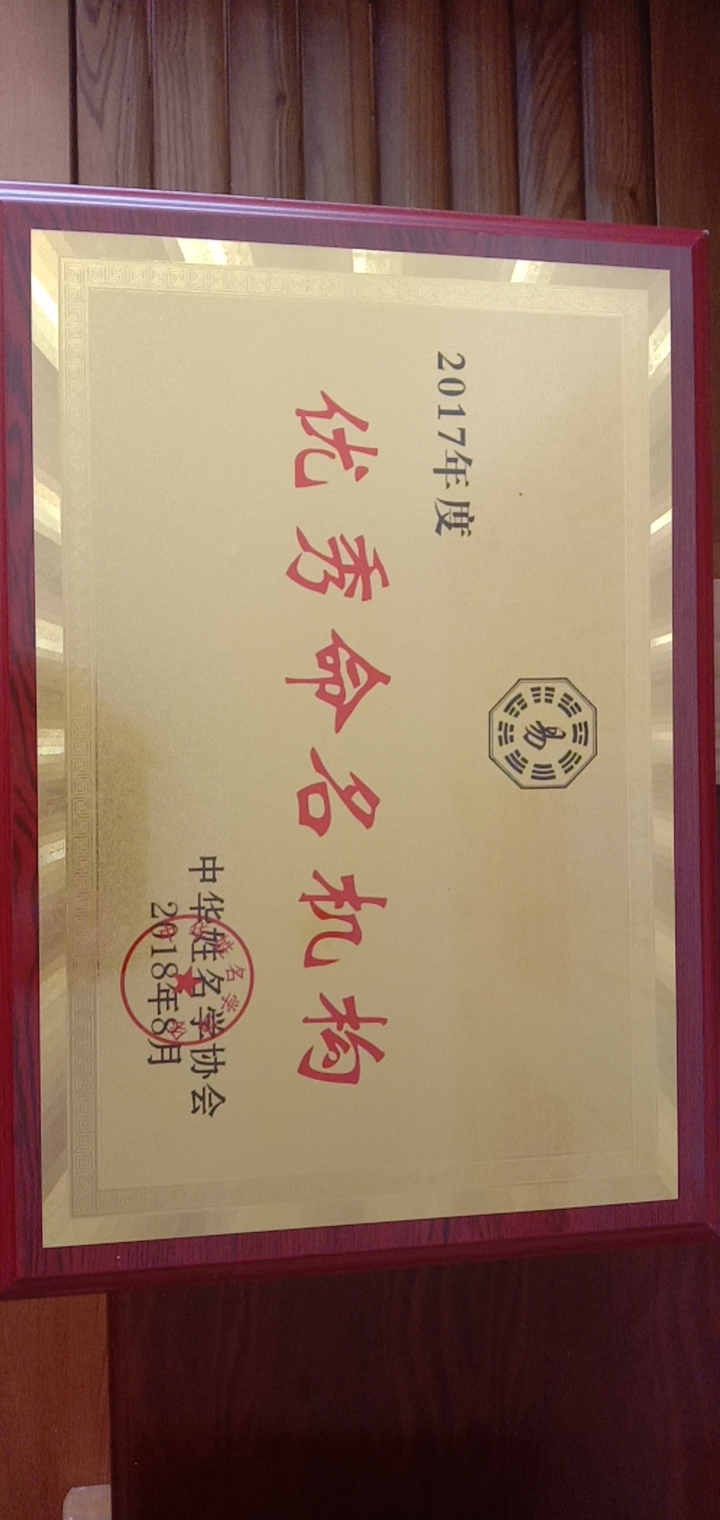 易
2017年度
优秀命名机构
中华姓名学协会
2018年8月